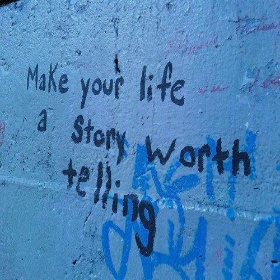 Make your life
a story worth
telling